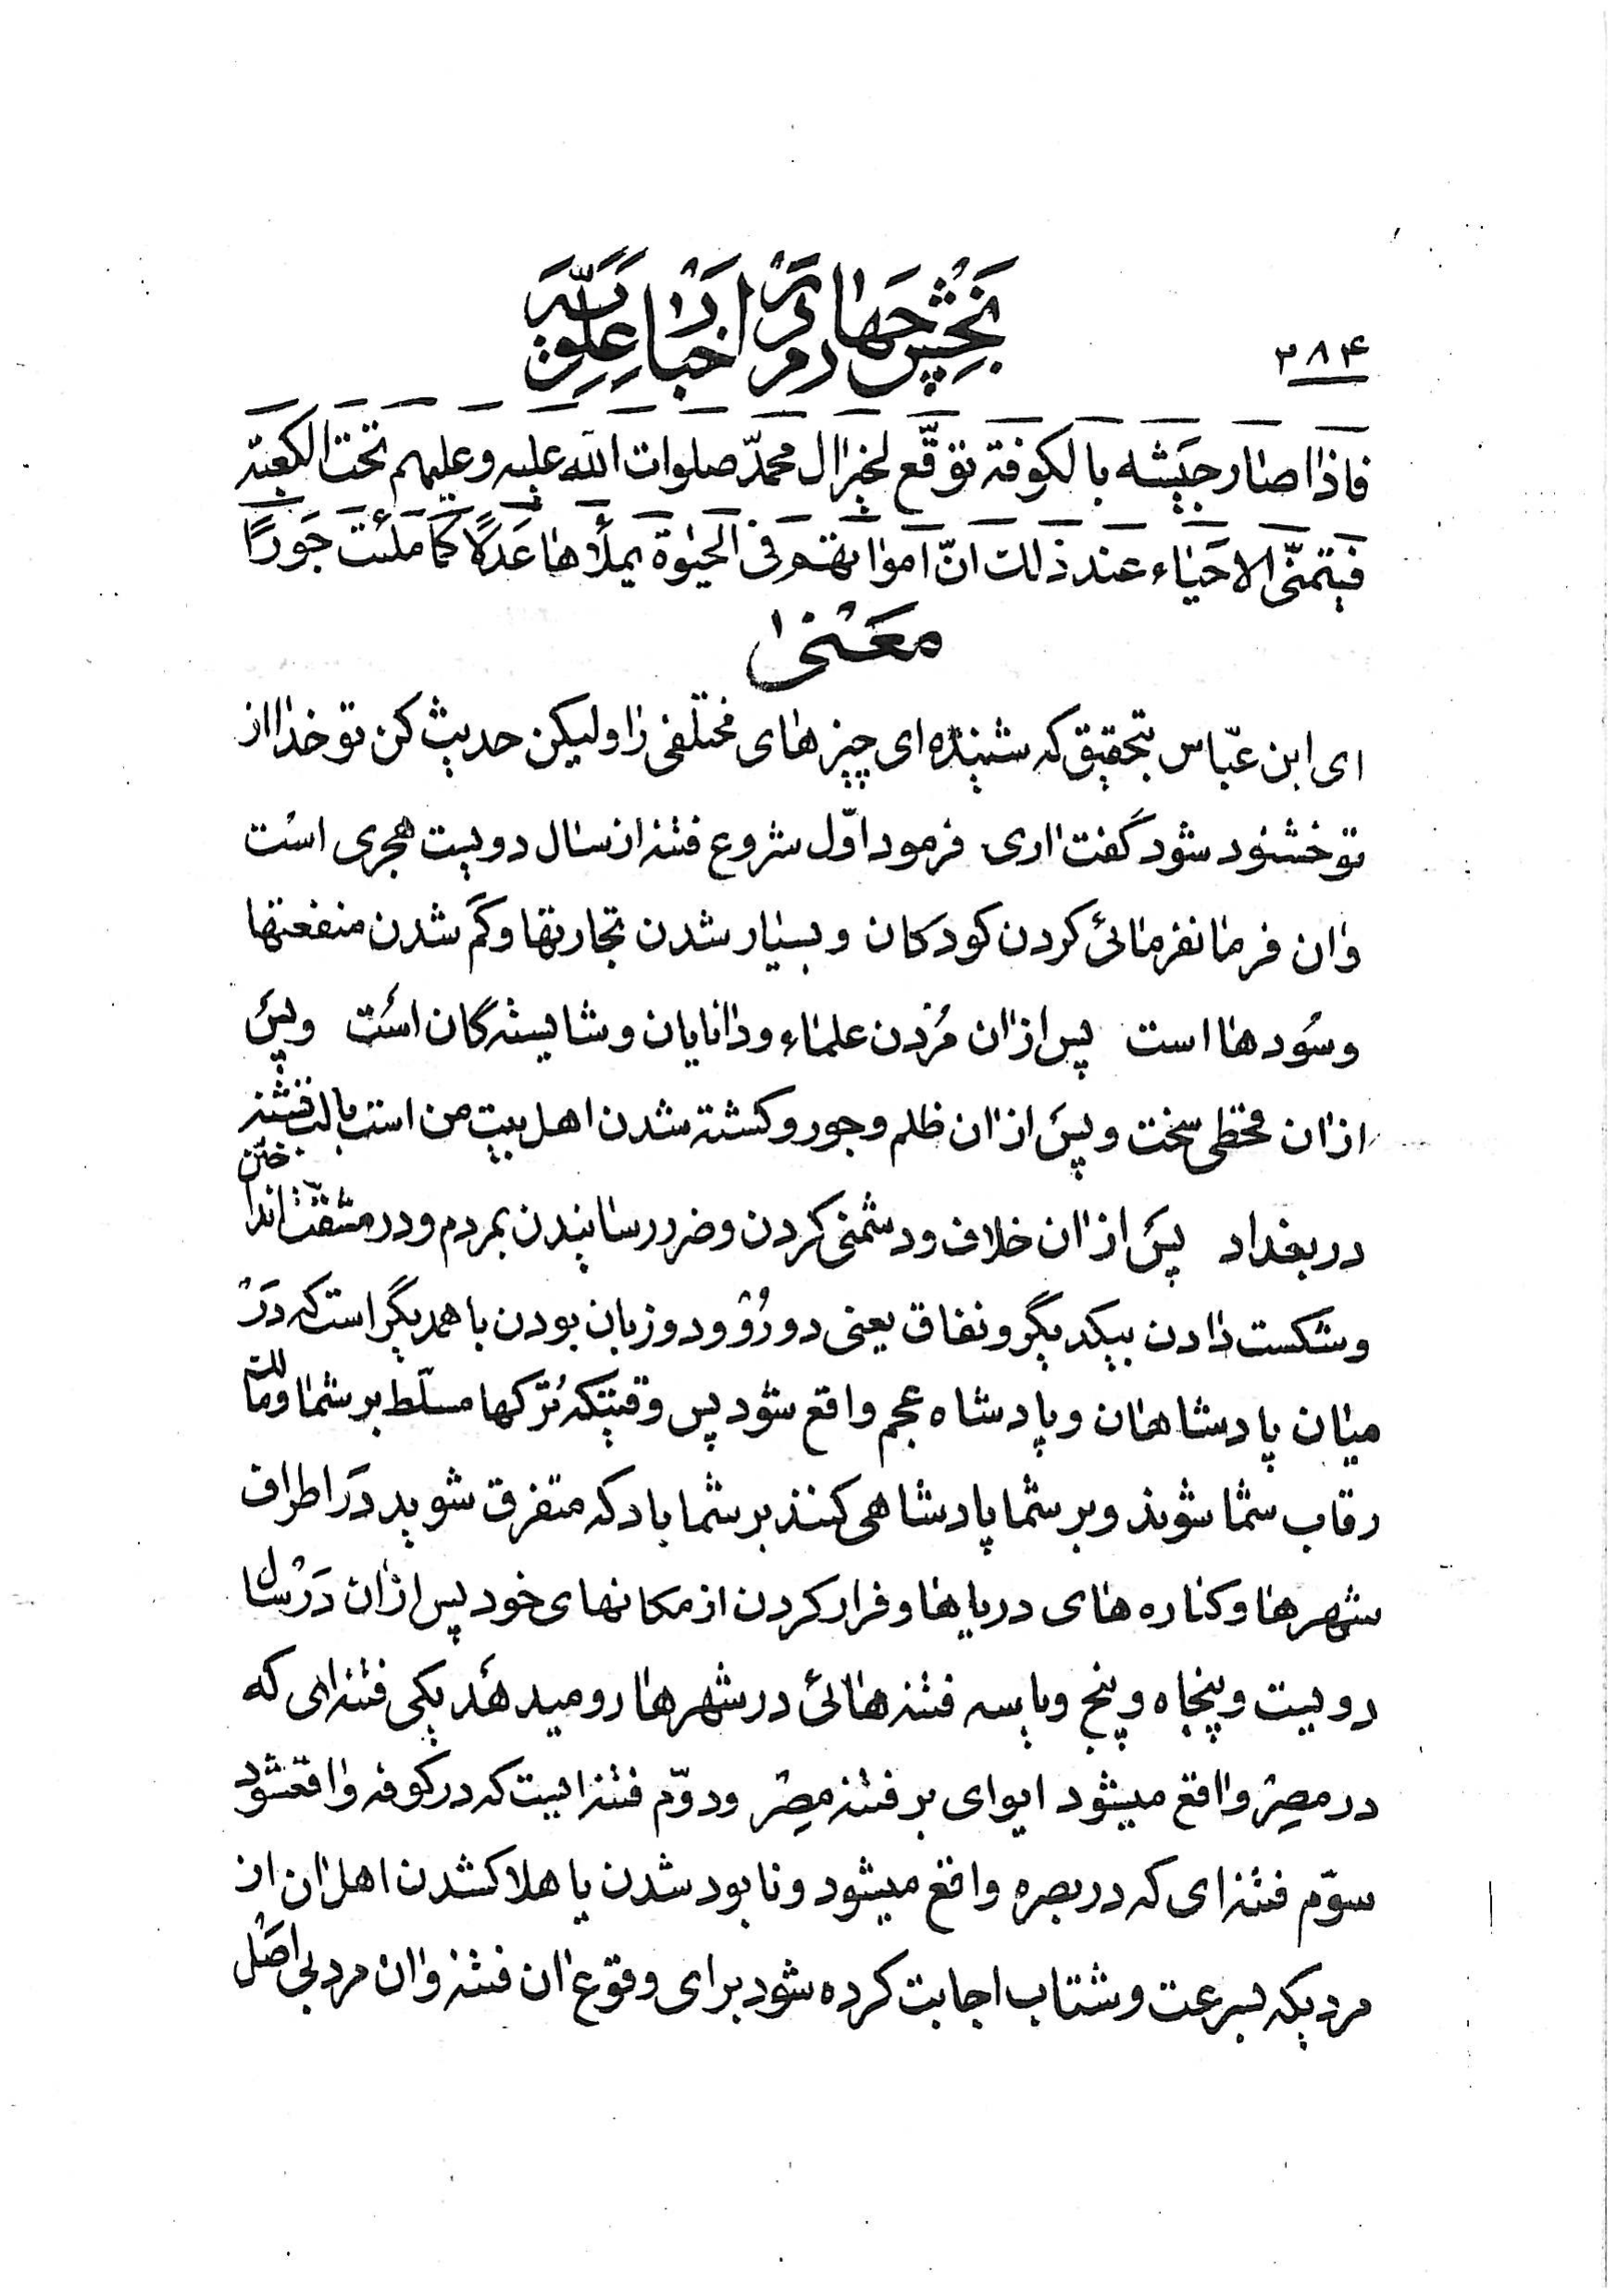 ۳۸۴
بخش چهارم در اخبار علویه
فاذا صار جیشه بالکوفة توقّع لخیر ال محمّد صلوات الله علیه وعلیهم تحت الکعبة
فیتمنّی الاحیاء عند ذلک انّ امواتهم فی الحیوة یملأها عَدلًا کما ملئت جَورًا
معنی
ای ابن عبّاس بتحقیق که شنیده ای چیزهای مختلفی را ولیکن حدیث کن تو خدا از
تو خشنود شود گفت اری فرمود اوّل شروع فتنه از سال دویست هجری است
وان فرمانفرمائی کردن کودکان و بسیار شدن تجارتها و کم شدن منفعتها
و سُودها است پس از ان مُردن علماء و دانایان و شایسته گان است و پس
از ان قحطی سخت و پس از ان ظلم و جور و کشته شدن اهل بیت من است بالب تشنه
در بغداد پس از ان خلاف و دشمنی کردن و ضرر رسانیدن بمردم و در مشقّت انداختن
و شکست دادن بیکدیگر و نفاق یعنی دو رُو و دو زبان بودن با همدیگر است که در
میان پادشاهان و پادشاه عجم واقع شود پس وقتیکه تُرکها مسلّط بر شما و مالک
رقاب شما شوند و بر شما پادشاهی کنند بر شما باد که متفرق شوید در اطراف
شهرها و کناره های دریاها و فرار کردن از مکانهای خود پس از ان در سال
دویست و پنجاه و پنج و یا سه فتنه هائی در شهرها رو میدهد یکی فتنه ای که
در مصر واقع میشود ایوای بر فتنه مصر و دوّم فتنه ایست که در کوفه واقعشود
سوّم فتنه ای که در بصره واقع میشود و نابود شدن یا هلاکشدن اهل ان از
مردیکه بسرعت و شتاب اجابت کرده شود برای وقوع ان فتنه وان مرد بی اصل